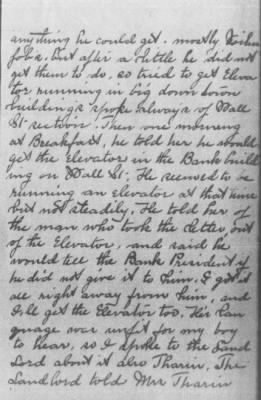 anything he could get. mostly Kitchen
jobs, but after a little he did not
get them to do, so tried to get Eleva
tor running in big down town
buildings spoke always of Wall
St. section. Then one morning
at Breakfast, he told her he should
get the Elevator in the Bank build
ing on Wall St. He seemed to be
running an elevator at that time
but not steadily. He told her of
the man who took the letter, out
of the Elevator, and said he
would tell the Bank President if
he did not give it to him, I got it
all right away from him, and
I'll get the Elevator too. His lan
guage was unfit for my boy
to hear, so I spoke to the Land
Lord about it also Tharin. The
Landlord told Mrs Tharin